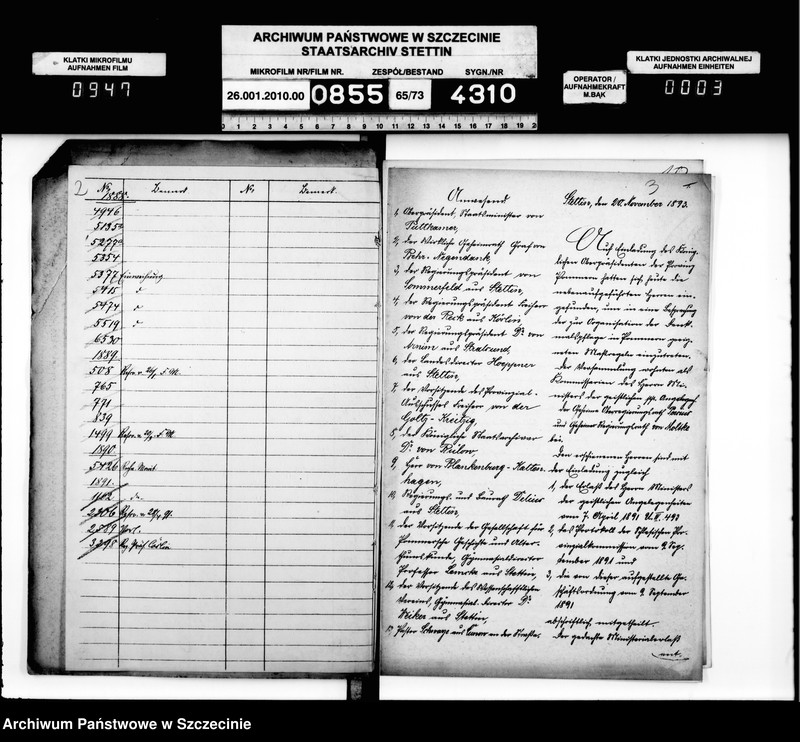 ARCHIWUM PAŃSTWOWE W SZCZECINIE
STAATSARCHIV STETTIN
KLATKI MIKROFILMU
AUFNAHMEN FILM
0947
MIKROFILM NR/FILM NR.
ZESPÓŁ/BESTAND
SYGN./NR
26.001.2010.00
0855
65/73
4310
OPERATOR /
AUFNAHMEKRAFT
M.BĄK
KLATKI JEDNOSTKI ARCHIWALNEJ
AUFNAHMEN EINHEITEN
0003
0 1 2 3 4 5 6 7 8 9 10 11 12 13 14 15 16 17 18 19 20
2
No. Bemerk. No. Bemerk.
1888.
4946
5185
5277
5354
5377
5415
5474
5519
6530
1889.
508
765
771
839
1499
1890.
5426
1891.
1102
2806
2809
3
Anwesend
1, Oberpräsident, Staatsminister von
Puttkamer,
2, der Wirkliche Geheimrath Graf von
Behr-Negendank,
3, der Regierungspräsident von
Sommerfeld aus Stettin,
4, der Regierungspräsident Freiherr
von der Reck aus Köslin,
5, der Regierungspräsident Dr. von
Arnim aus Stralsund,
6, der Landesdirector Hoeppner
aus Stettin,
7, der Vorsitzende des Provinzial-
Ausschusses Freiherr von der
Goltz-Kreitzig,
8, der Königliche Staatsarchivar
Dr. von Bülow,
9, Herr von Blankenburg-
hagen,
10, Regierungs- und Baurath
aus Stettin,
11, der Vorsitzende der Gesellschaft für
Pommersche Geschichte und Alter-
thumskunde, Gymnasialdirector
Professor Lemcke aus Stettin,
12, der Vorsitzende des Wissenschaftlichen
Vereins, Gymnasial-director Dr.
Weiker aus Stettin,
13, Pastor aus an der
Stettin, den 20. November 1893.
Auf Einladung des König-
lichen Oberpräsidenten der Provinz
Pommern hatten sich heute die
nebenaufgeführten Herren ein-
gefunden, um in eine Besprechung
der zur Organisation der Denk-
malspflege in Pommern geeig-
neten Maßregeln einzutreten.
Der Versammlung wohnten als
Kommissarien des Herrn Mi-
nisters der geistlichen pp. Angelegenh.
der Geheime Oberregierungsrath Persius
und Geheime Regierungsrath von Moltke
bei.
Den erschienenen Herren sind mit
der Einladung zugleich
1, der Erlaß des Herrn Ministers
der geistlichen Angelegenheiten
vom 7. April 1891
2, das Protokoll der Schlesischen Pro-
vinzialkommission vom 9. Sep-
tember 1891 und
3, die von dieser aufgestellte Ge-
schäftsordnung vom 9. September
1891
abschriftlich mitgetheilt.
Der gedachte Ministerialerlaß
Archiwum Państwowe w Szczecinie